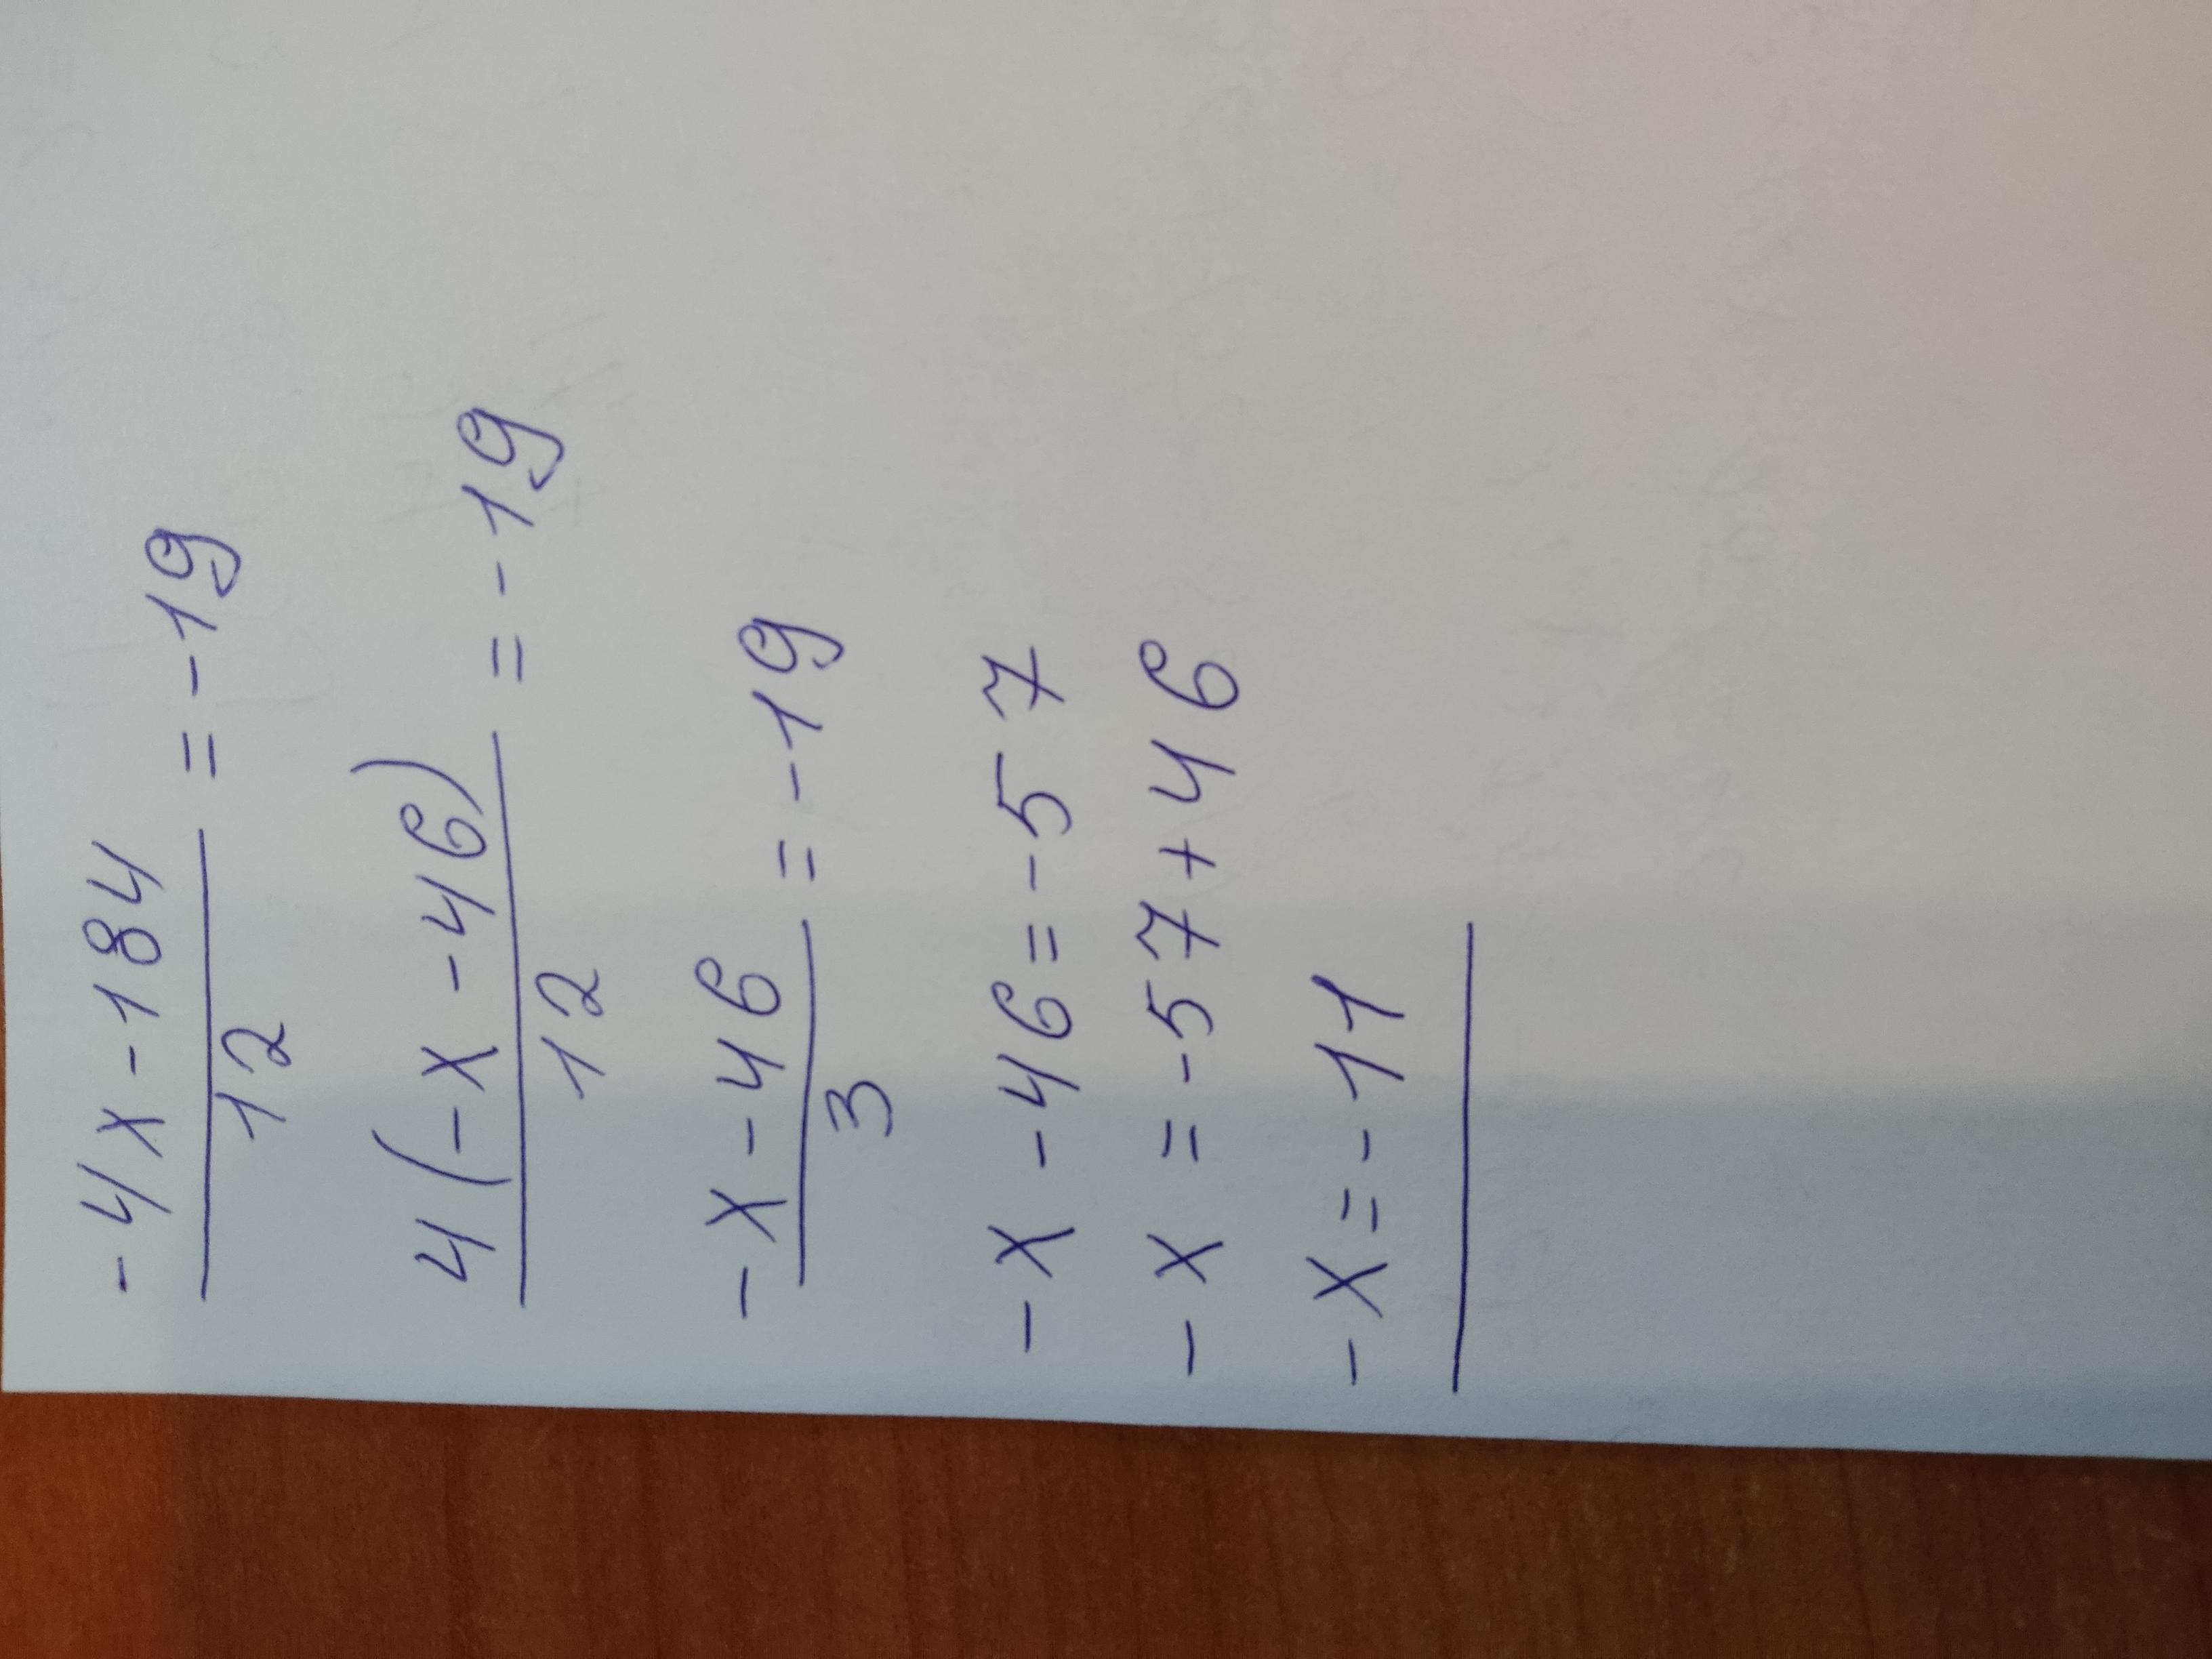 -4x-184
12 = -19
4(-x-46)
12 = -19
-x-46
3 = -19
-x-46=-57
-x=-57+46
-x=-11